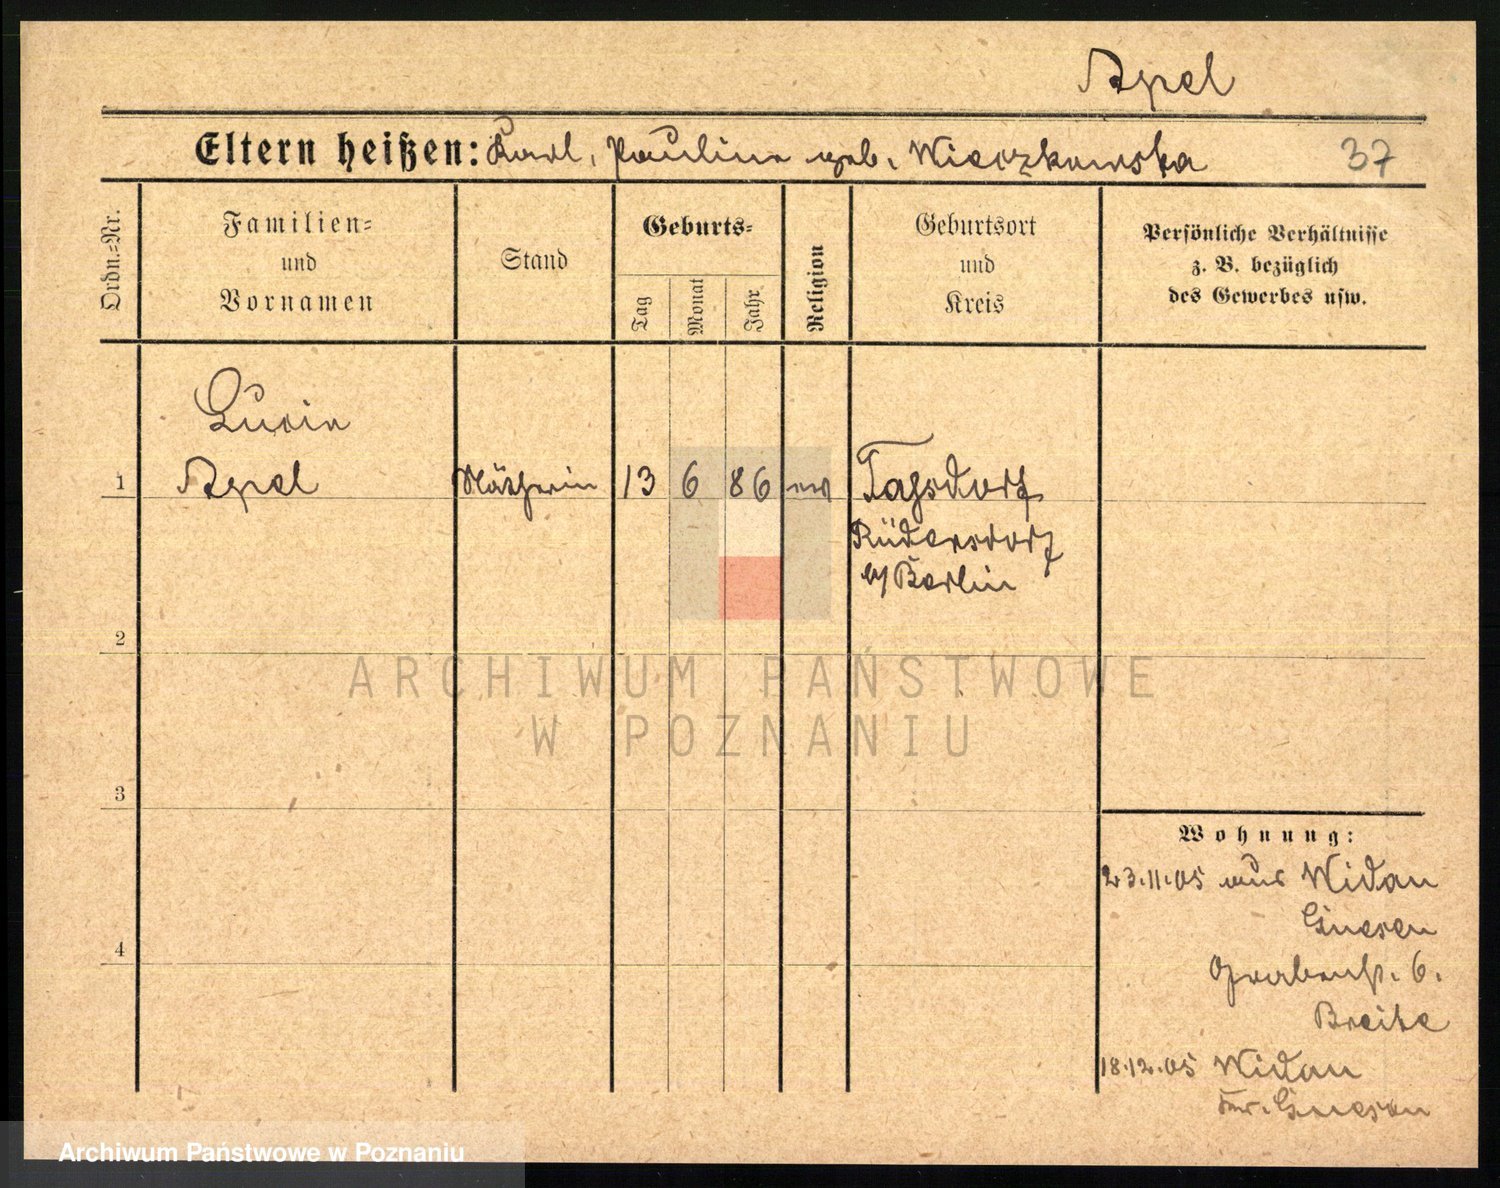 Apel
Eltern heißen: Karl, Pauline geb. Wieczkowska
37
Ordn.-Nr.
Familien-
und
Vornamen
Stand
Geburts-
Tag
Monat
Jahr
Religion
Geburtsort
und
Kreis
Persönliche Verhältnisse
z. B. bezüglich
des Gewerbes usw.
Lucie
1 Apel Nätherin 13 6 86 Tasdorf
Rüdersdorf
b/ Berlin
2
ARCHIWUM PAŃSTWOWE
W POZNANIU
3
4
Wohnung:
23.11.05 aus Widau
Gnesen
Grabenst. 6.
Breite
18.12.05 Widau
Gnesen
Archiwum Państwowe w Poznaniu